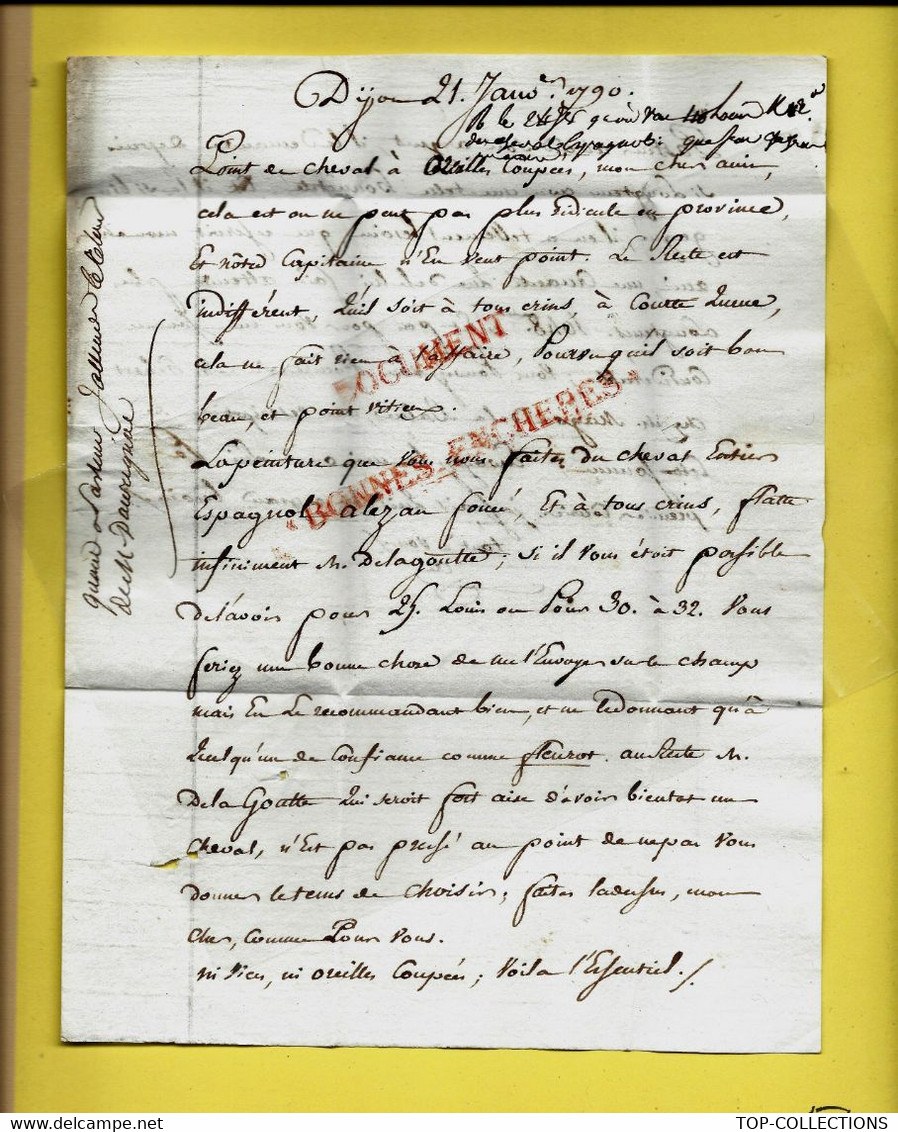 Dijon 21. Janv.er 1790.
R le 24
Point de cheval à oreilles Coupées, mon cher ami,
cela est on ne peut pas plus ridicule en province,
Et nôtre Capitaine n'En veut point. Le Reste est
indifférent, Qu'il soit à tous crins, à Courte Queue,
cela ne fait rien à l'affaire, Pourvu qu'il soit bon
beau, et point vitieux.
La peinture que vous nous faites du cheval Entier
Espagnol alezan foncé, Et à tous crins, flatte
infiniment M. Delagoutte; si il vous étoit possible
de l'avoir pour 25. Louis ou Pour 30. à 32. vous
feriez une bonne chose de me l'Envoyer sur le champ
mais En le recommandant bien, et ne le donnant qu'à
Quelqu'un de Confiance comme fleurot. au Reste M.
De la Goutte Qui seroit fort aise d'avoir bientot un
cheval, n'Est pas pressé au point de ne pas vous
donner le tems de choisir; faites la dessus, mon
cher, comme Pour vous.
ni vices, ni oreilles Coupées; voila l'Essentiel./.
DOCUMENT
BONNES ENCHERES
TOP-COLLECTIONS